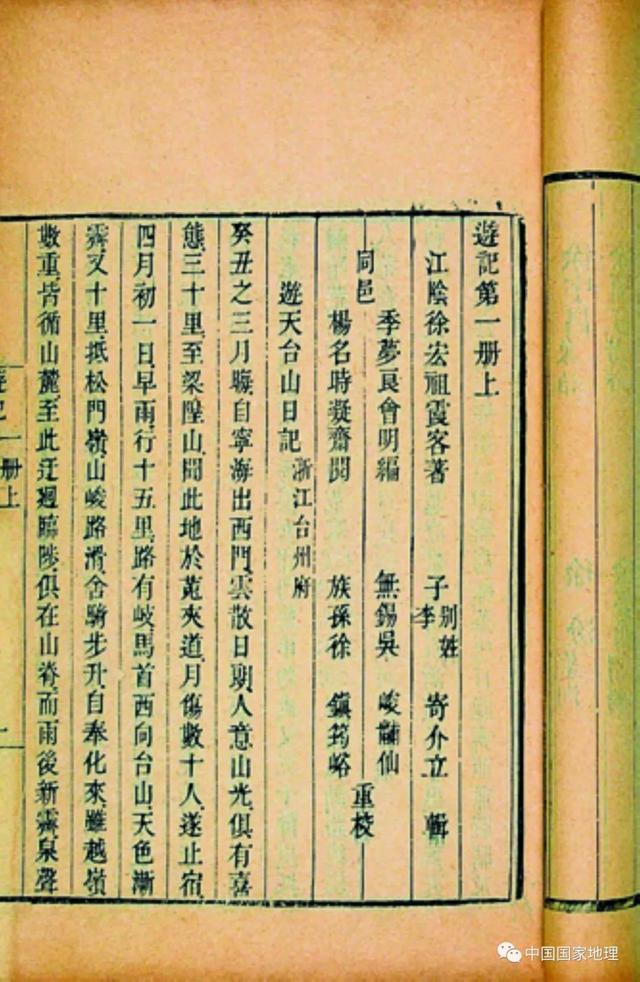 遊記第一册上
江陰徐宏祖霞客著 子 别姓李 寄介立 輯
同邑
季夢良會明編 無錫吳 峻黼仙
楊名時凝齋閱 族孫徐 鎮筠峪
重校
遊天台山日記 浙江台州府
癸丑之三月晦自寧海出西門雲散日朗人意山光俱有喜
態三十里至梁隍山聞此地於菟夾道月傷數十人遂止宿
四月初一日早雨行十五里路有岐馬首西向台山天色漸
霽又十里抵松門嶺山峻路滑舍騎步升自奉化來雖越嶺
數重皆循山麓至此迂迴臨陟俱在山脊而雨後新霽泉聲
遊記一册上
中国国家地理